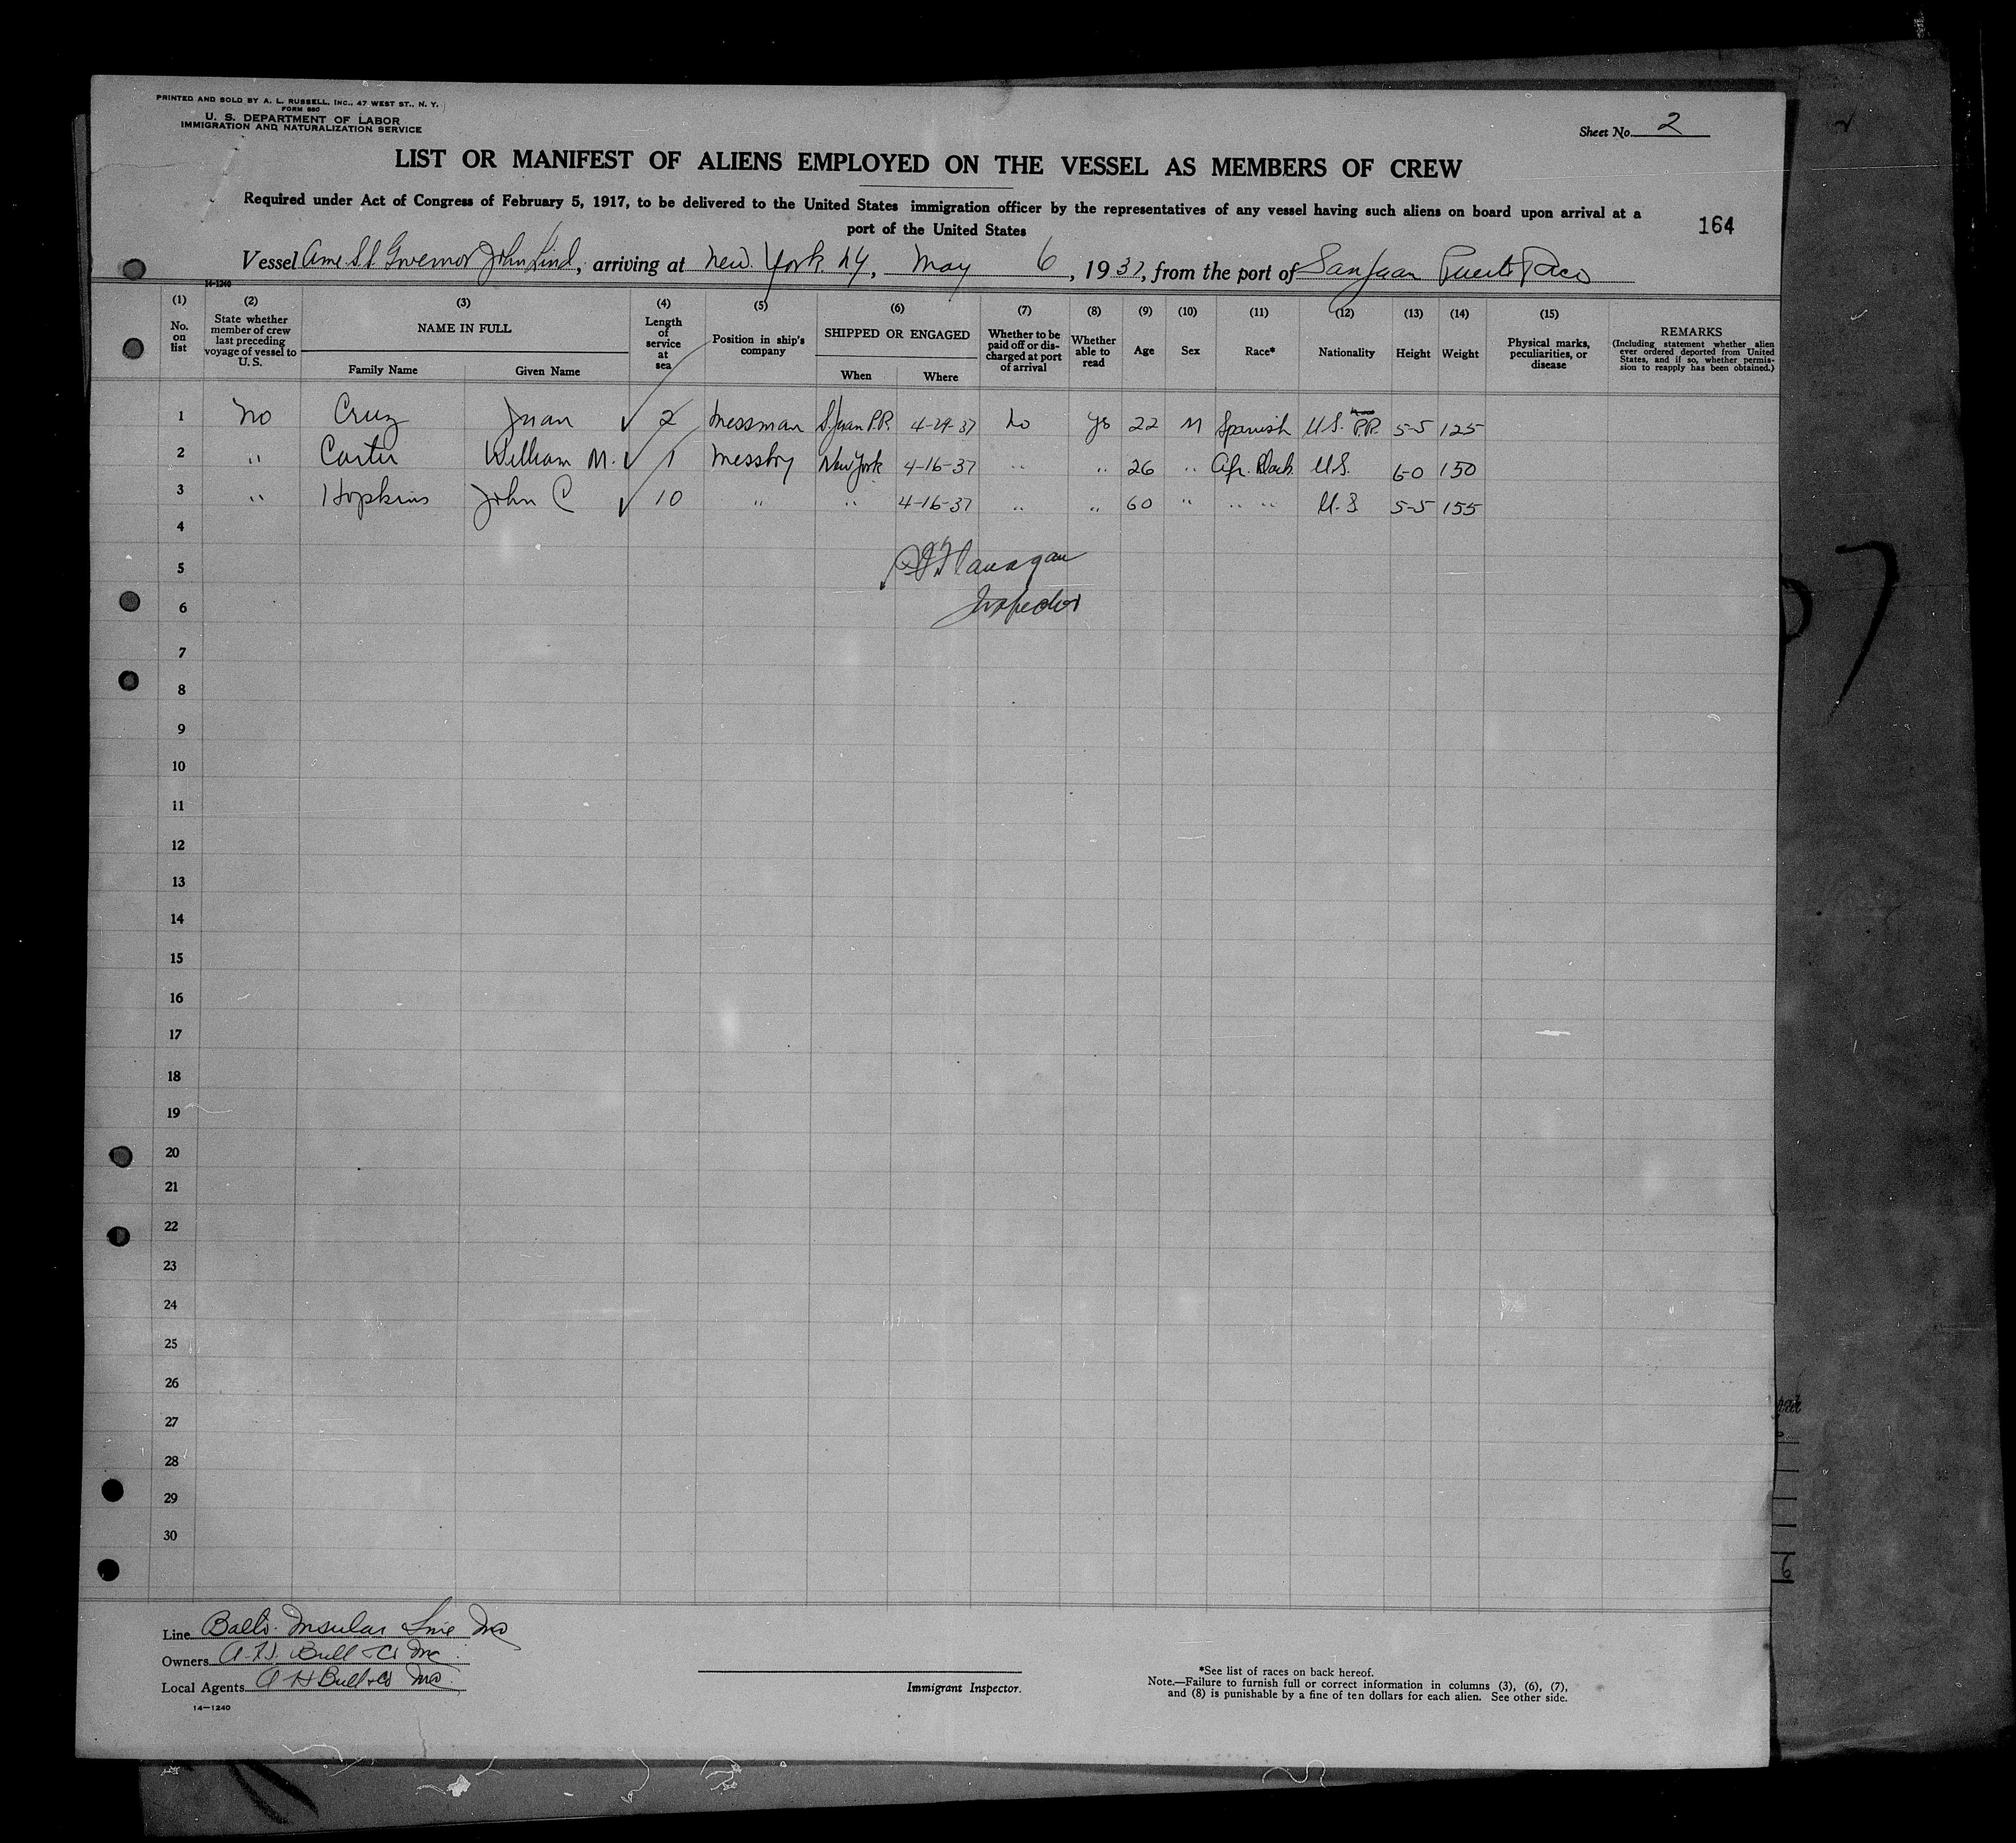 PRINTED AND SOLD BY A. L. RUSSELL, INC., 47 WEST ST., N. Y.
FORM 680
U. S. DEPARTMENT OF LABOR
IMMIGRATION AND NATURALIZATION SERVICE
Sheet No. 2
LIST OR MANIFEST OF ALIENS EMPLOYED ON THE VESSEL AS MEMBERS OF CREW
Required under Act of Congress of February 5, 1917, to be delivered to the United States immigration officer by the representatives of any vessel having such aliens on board upon arrival at a
port of the United States
164
Vessel Ame. S.S. Governor John Lind, arriving at New York. NY, May 6, 1937, from the port of San Juan Puerto Rico
14-1240
(1) (2) (3) (4) (5) (6) (7) (8) (9) (10) (11) (12) (13) (14) (15)
No. on list State whether member of crew last preceding voyage of vessel to U. S. NAME IN FULL Length of service at sea Position in ship's company SHIPPED OR ENGAGED Whether to be paid off or discharged at port of arrival Whether able to read Age Sex Race* Nationality Height Weight Physical marks, peculiarities, or disease REMARKS (Including statement whether alien ever ordered deported from United States, and if so, whether permission to reapply has been obtained.)
Family Name Given Name When Where
1 No Cruz Juan ✓ 2 Messman S. Juan P.R. 4-29-37 No Yes 22 M Spanish U.S. P.R. 5-5 125
2 " Carter William M. ✓ 1 Messboy New York 4-16-37 " " 26 " Afr. Black. U.S. 6-0 150
3 " Hopkins John C ✓ 10 " " 4-16-37 " " 60 " " " U.S 5-5 155
4
5 Flanagan
6 Inspector
7
8
9
10
11
12
13
14
15
16
17
18
19
20
21
22
23
24
25
26
27
28
29
30
Line Balto. Insular Line Inc
Owners A. H. Bull & Co Inc.
Local Agents A H Bull & Co Inc.
14-1240
Immigrant Inspector.
*See list of races on back hereof.
Note.—Failure to furnish full or correct information in columns (3), (6), (7),
and (8) is punishable by a fine of ten dollars for each alien. See other side.